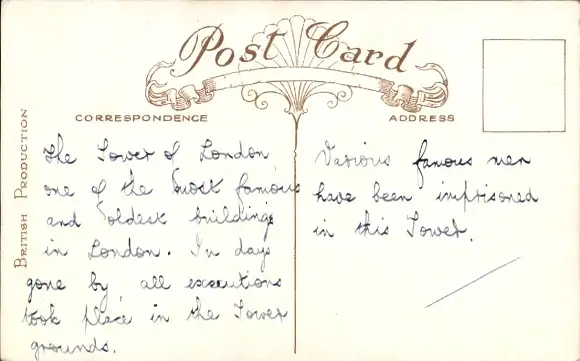 Post Card
CORRESPONDENCE
ADDRESS
BRITISH PRODUCTION
The Tower of London
one of the most famous
and oldest buildings
in London. In days
gone by all executions
took place in the Tower
grounds.
Various famous men
have been imprisoned
in this Tower.